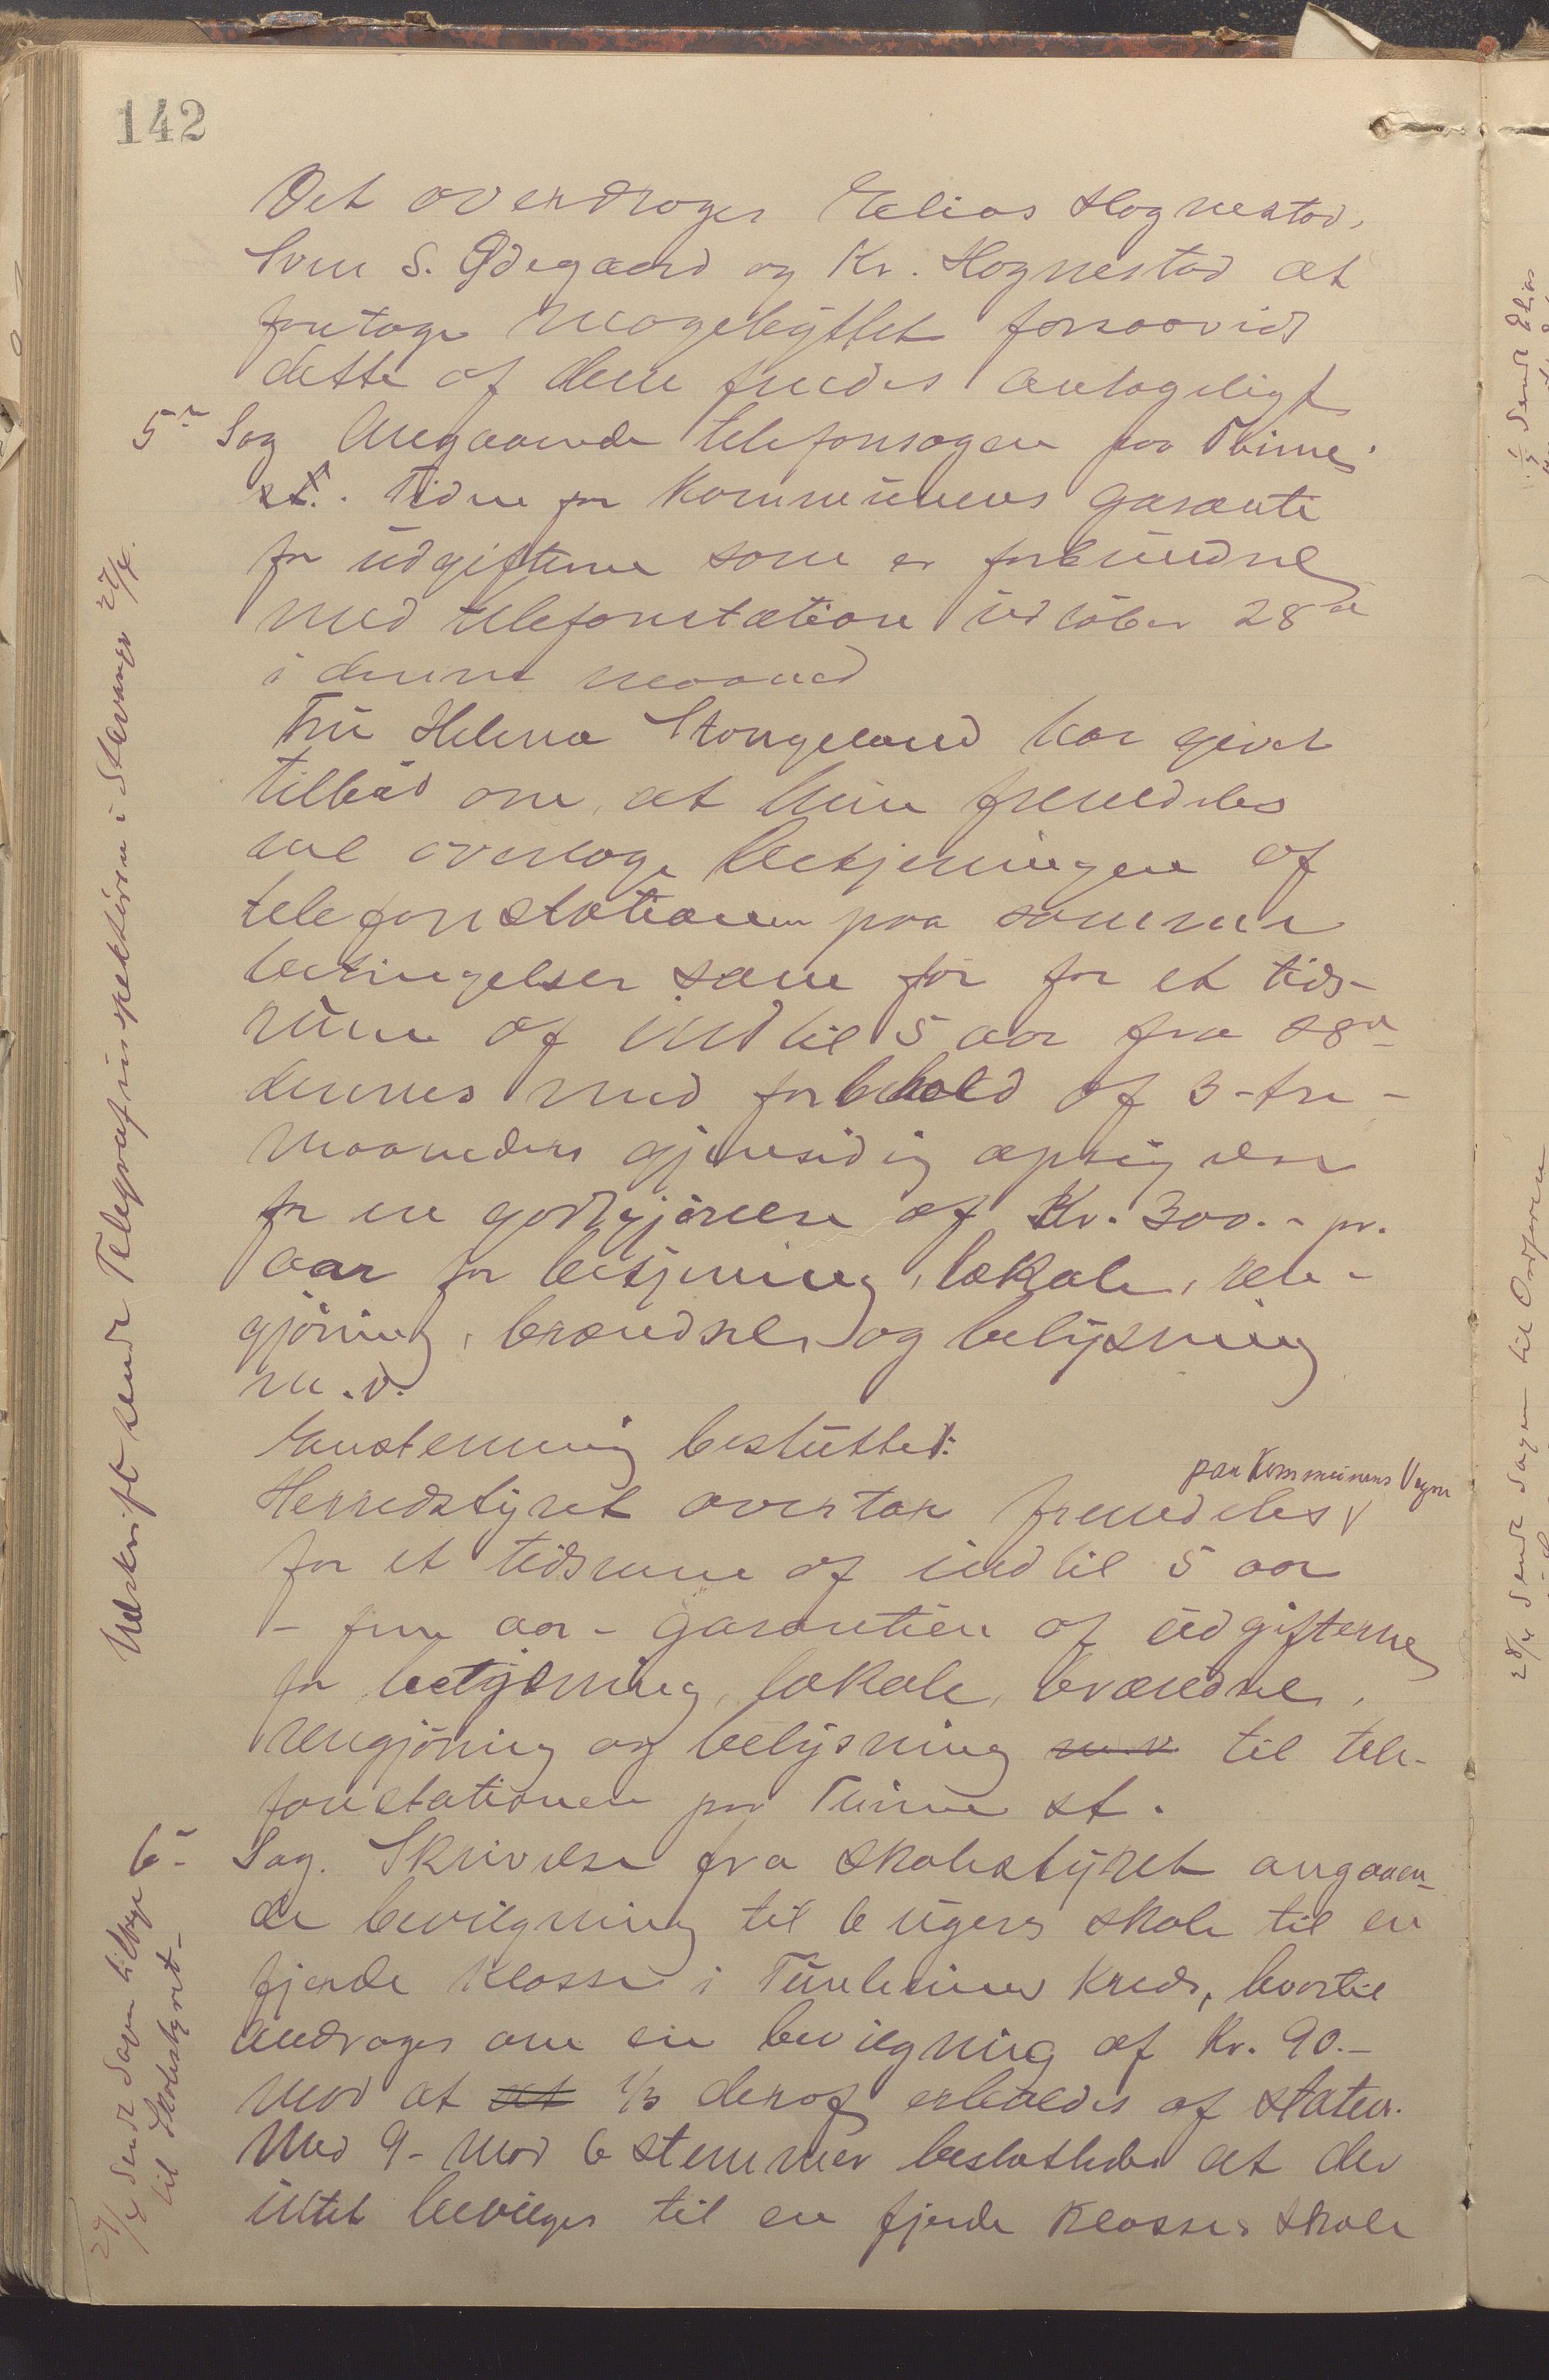 142
Det overdroges Elias Hognestad,
Sven S. Ødegaard og Kr. Hognestad at
foretage magebyttet forsaavidt
dette af dem findes antageligt
5te Sag Angaaende telefonsagen paa Thime
st. Tiden for Kommunens garanti
for udgifterne som er forbundne
med telefonstation udløber 28de
i denne maaned
Fru Helena Stangeland har givet
tilbud om, at hun fremdeles
vil overtage betjeningen af
telefonstationen paa samme
betingelser som før for et tids-
rum af indtil 5 aar fra 28de
dennes med forbehold af 3 - tre -
maaneders gjensidig opsigelse
for en godtgjørelse af Kr. 300.- pr.
aar for betjening, lokale, ren-
gjøring, brændsel og belysning
m.v.
Enstemmig besluttet:
Herredstyret overtar fremdeles paa Kommunens Vegne
for et tidsrum af indtil 5 aar
- fem aar - garantien af udgifterne
for betjening, lokale, brændsel,
rengjøring og belysning m.v. til tele-
fonstationen paa Thime st.
6te Sag. Skrivelse fra Skolestyret angaaen-
de bevilgning til 6 ugers skole til en
fjerde klasse i Tunheims Kreds, hvortil
andrages om en bevilgning af Kr. 90.-
mod at at 1/3 deraf erholdes af staten.
Med 9 - mod 6 stemmer beslottedes at der
intet bevilges til en fjerde Klasses skole
Udskrift sendt Telegrafinspektøren i Stavanger 27/4.
27/4 sendt Sagen tilbage
til Skolestyret -
28/4 sendt Sagen til Ordføreren